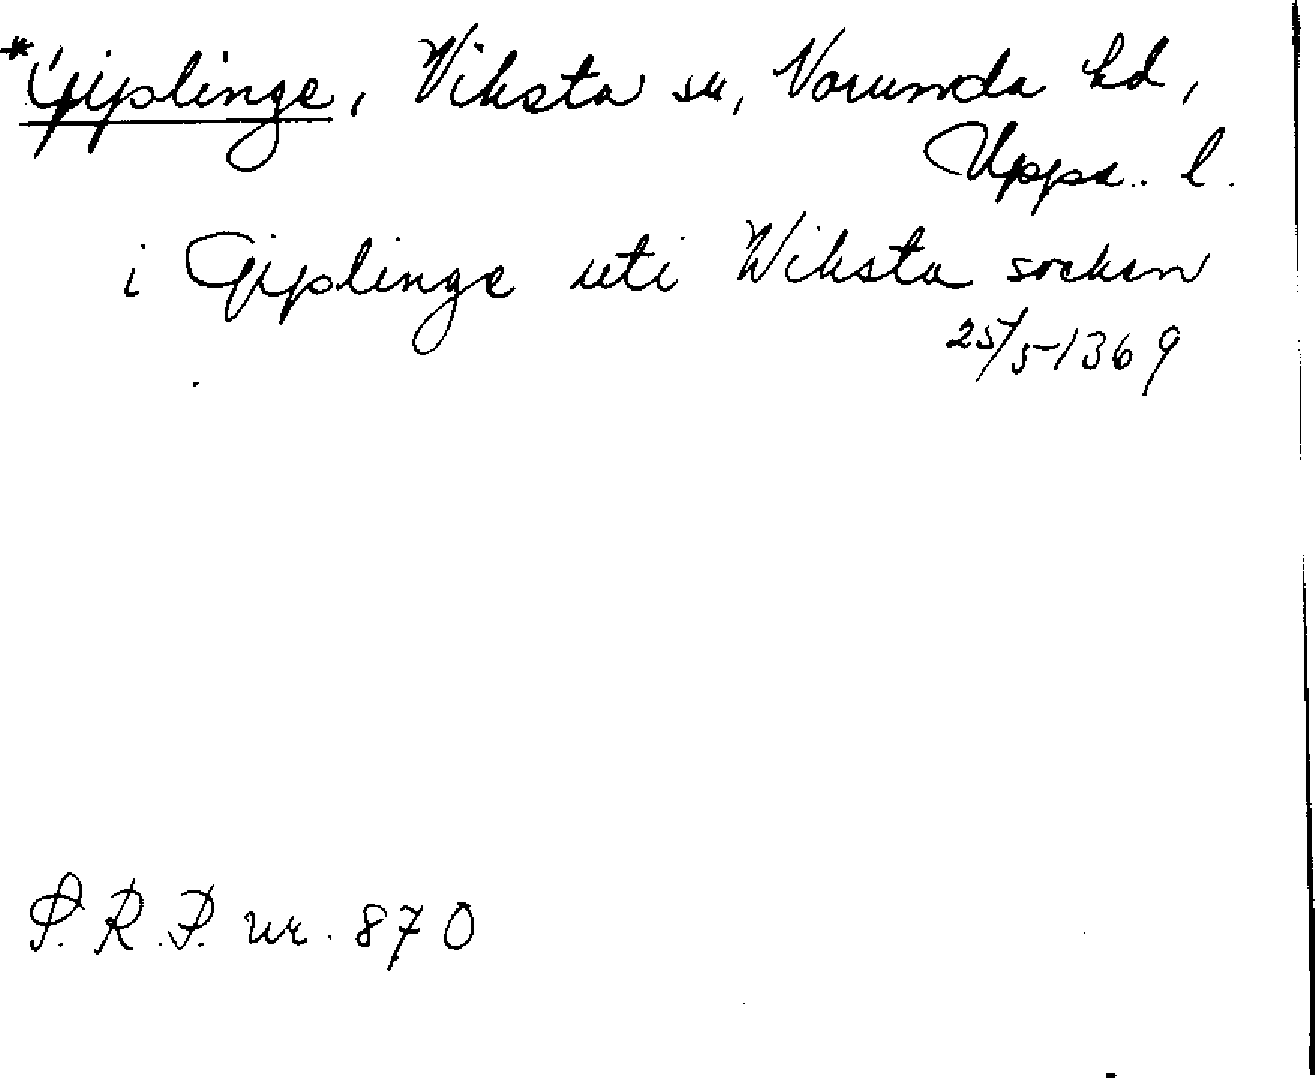 *Gijplinge, Viksta sn, Norunda hd,
Upps. l.
i Gijplinge uti Wiksta socken
25/5-1369
S.R.P. nr. 870